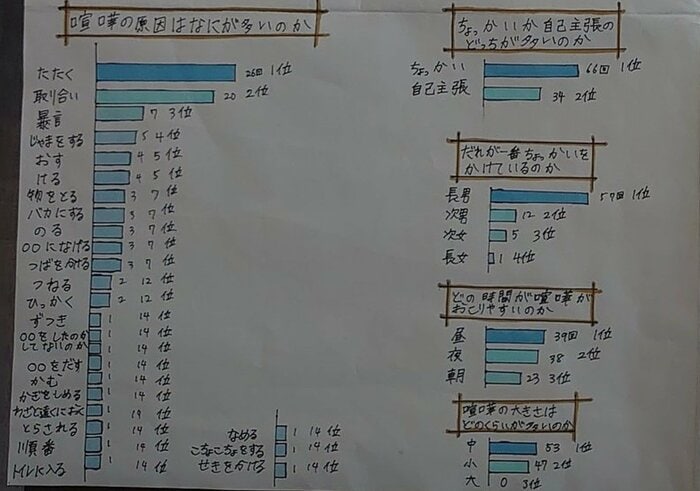 喧嘩の原因はなにが多いのか
たたく 26回 1位
取り合い 20 2位
暴言 7 3位
じゃまをする 5 4位
おす 4 5位
ける 4 5位
物をとる 3 7位
バカにする 3 7位
のる 3 7位
〇〇になげる 3 7位
つばを付ける 3 7位
つねる 2 12位
ひっかく 2 12位
ずつき 1 14位
〇〇をしたのか
してないのか 1 14位
〇〇をだす 1 14位
かむ 1 14位
かぎをしめる 1 14位
わざと遠くに 1 14位
とらされる 1 14位
順番 1 14位
トイレに入る 1 14位
なめる 1 14位
こちょこちょをする 1 14位
せきをかける 1 14位
ちょっかいか自己主張の
どっちが多いのか
ちょっかい 66回 1位
自己主張 34 2位
だれが一番ちょっかいを
かけているのか
長男 57回 1位
次男 12 2位
次女 5 3位
長女 1 4位
どの時間が喧嘩が
おこりやすいのか
昼 39回 1位
夜 38 2位
朝 23 3位
喧嘩の大きさは
どのくらいが多いのか
中 53 1位
小 47 2位
大 0 3位